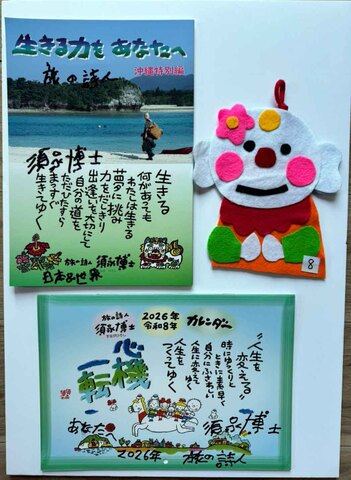 生きる力を あなたへ
沖縄特別編
旅の詩人
須永博士
生きる
何があっても
わたしは生きる
夢に挑み
力をだしきり
出逢いを大切にして
自分の道を
ただひたすら
まっすぐ
生きてゆく
旅の詩人 須永博士
日本&世界
8
旅の詩人
須永博士
2026年
令和8年
カレンダー
心機一転
"人生を
変える"
時にゆっくりと
ときに素早く
自分にふさわしい
人生に変えて
ゆく
人生を
つくってゆく
あなたへ
須永博士
2026年
旅の詩人